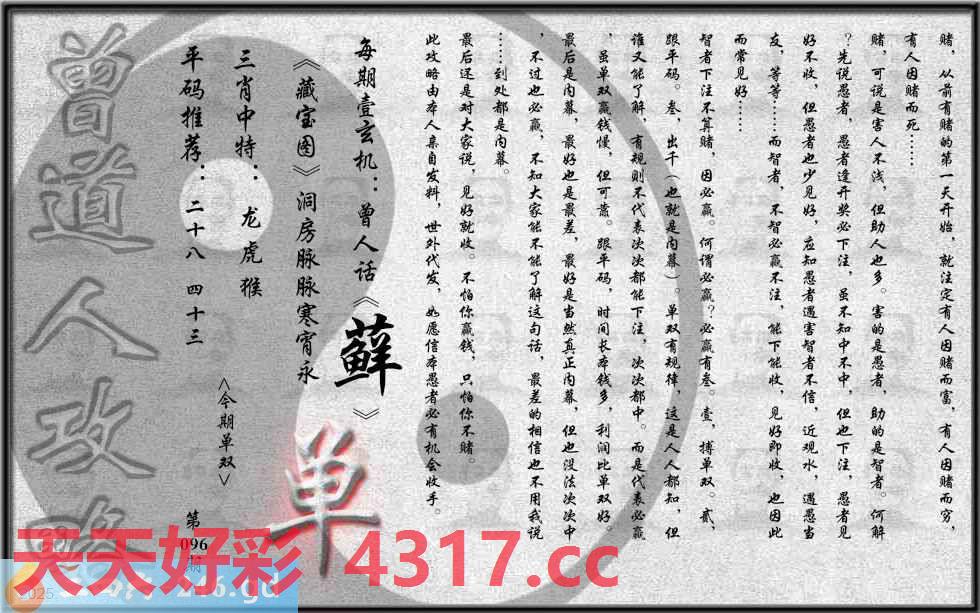 赌，从前有赌的第一天开始，就注定有人因赌而富，有人因赌而穷，
有人因赌而死……
赌，可说是害人不浅，但助人也多。害的是愚者，助的是智者。何解
？先说愚者，愚者逢开奖必下注，虽不知中不中，但也下注，愚者见
好不收，但愚者也少见好，应知愚者遇害智者不信，近观水，遇愚当
友，等等……而智者，不智必赢不注，能下能收，见好即收，也因此
而常见好……
智者下注不算赌，因必赢。何谓必赢？必赢有叁。壹，搏单双。贰，
跟平码。叁，出千（也就是内幕）。单双有规律，这是人人都知，但
谁又能了解，有规则不代表次次都能下注，次次都中。而是代表必赢
，虽单双赢钱慢，但可蓄。跟平码，时间长本钱多，利润比单双好。
最后是内幕，最好也是最差，最好是当然真正内幕，但也没法次次中
，不过也必赢，不知大家能不能了解这句话，最差的相信也不用我说
……到处都是内幕。
最后还是对大家说，见好就收。不怕你赢钱，只怕你不赌。
此攻略由本人亲自发料，世外代发，如愿信本愚者必有机会收手。
每期壹玄机：曾人话《蘚》
《藏宝图》洞房脉脉寒宵永
三肖中特：龙虎猴
平码推荐：二十八 四十三
<今期单双>
单
第096期
曾道人攻略
天天好彩 4317.cc
2025
246.gd